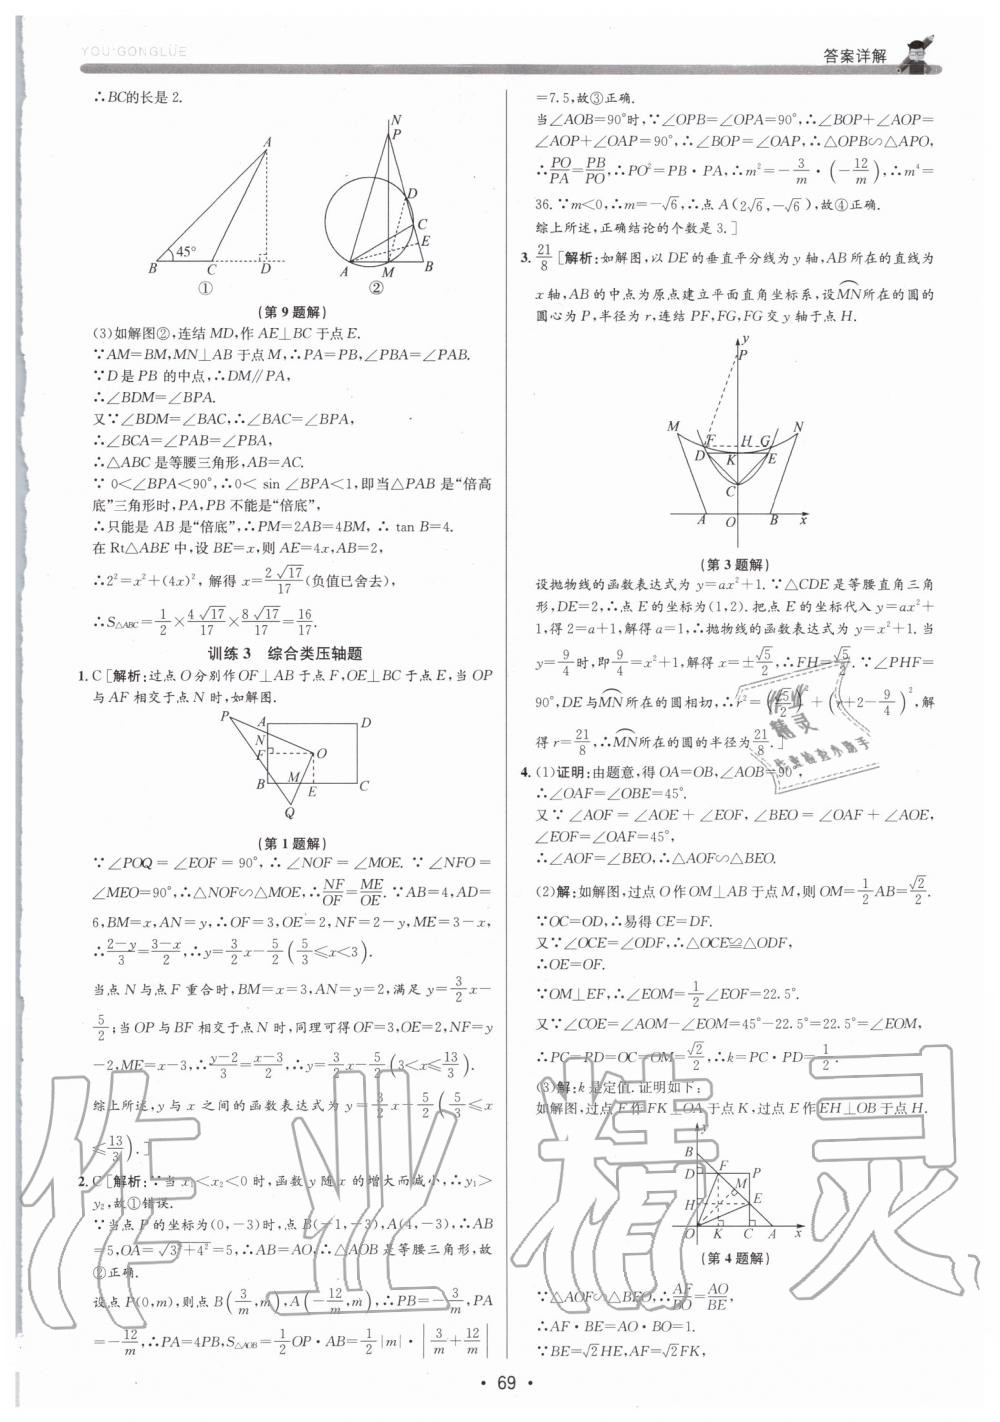 YOU·GONGLÜE
答案详解
∴BC的长是 2.
A
45°
B C D
①
N
P
D
C
E
A M B
②
(第 9 题解)
(3)如解图②,连结 MD,作 AE⊥BC 于点 E.
∵AM=BM,MN⊥AB 于点 M,∴PA=PB,∠PBA=∠PAB.
∵D 是 PB 的中点,∴DM∥PA,
∴∠BDM=∠BPA.
又∵∠BDM=∠BAC,∴∠BAC=∠BPA,
∴∠BCA=∠PAB=∠PBA,
∴△ABC 是等腰三角形,AB=AC.
∵ 0<∠BPA<90°,∴0< sin ∠BPA<1,即当△PAB 是“倍高
底”三角形时,PA,PB 不能是“倍底”,
∴只能是 AB 是“倍底”,∴PM=2AB=4BM, ∴ tan B=4.
在 Rt△ABE 中,设 BE=x,则 AE=4x,AB=2,
∴2²=x²+(4x)², 解得 x=2√17/17(负值已舍去),
∴S△ABC=1/2×4√17/17×8√17/17=16/17.
训练 3 综合类压轴题
1. C [解析:过点 O 分别作 OF⊥AB 于点 F,OE⊥BC 于点 E,当 OP
与 AF 相交于点 N 时,如解图.
P A D
N
F O
M
B E C
Q
(第 1 题解)
∵∠POQ=∠EOF=90°,∴∠NOF=∠MOE.∵∠NFO=
∠MEO=90°,∴△NOF∽△MOE,∴NF/OF=ME/OE.∵AB=4,AD=
6,BM=x,AN=y,∴OF=3,OE=2,NF=2-y,ME=3-x,
∴(2-y)/3=(3-x)/2,∴y=3/2x-5/2(5/3≤x<3).
当点 N 与点 F 重合时,BM=x=3,AN=y=2,满足 y=3/2x-
5/2;当 OP 与 BF 相交于点 N 时,同理可得 OF=3,OE=2,NF=y
-2,ME=x-3,∴(y-2)/3=(x-3)/2,∴y=3/2x-5/2(3<x≤13/3).
综上所述,y 与 x 之间的函数表达式为 y=3/2x-5/2(5/3≤x
≤13/3).]
2. C [解析:∵当 x₁<x₂<0 时,函数 y 随 x 的增大而减小,∴y₁>
y₂,故①错误.
∵当点 P 的坐标为(0,-3)时,点 B(-1,-3),A(4,-3),∴AB
=5,OA=√(3²+4²)=5,∴AB=AO,∴△AOB 是等腰三角形,故
②正确.
设点 P(0,m),则点 B(3/m,m),A(-12/m,m),∴PB=-3/m,PA
=-12/m,∴PA=4PB,S△AOB=1/2OP·AB=1/2|m|·|3/m+12/m|
=7.5,故③正确.
当∠AOB=90°时,∵∠OPB=∠OPA=90°,∴∠BOP+∠AOP=
∠AOP+∠OAP=90°,∴∠BOP=∠OAP,∴△OPB∽△APO,
∴PO/PA=PB/PO,∴PO²=PB·PA,∴m²=-3/m·(-12/m),∴m⁴=
36.∵m<0,∴m=-√6,∴点 A(2√6,-√6),故④正确.
综上所述,正确结论的个数是 3.]
3. 21/8 [解析:如解图,以 DE 的垂直平分线为 y 轴,AB 所在的直线为
x 轴,AB 的中点为原点建立平面直角坐标系,设MN所在的圆的
圆心为 P,半径为 r,连结 PF,FG,FG 交 y 轴于点 H.
y
P
M F H G N
D K E
C
A O B x
(第 3 题解)
设抛物线的函数表达式为 y=ax²+1.∵△CDE 是等腰直角三角
形,DE=2,∴点 E 的坐标为(1,2).把点 E 的坐标代入 y=ax²+
1,得 2=a+1,解得 a=1,∴抛物线的函数表达式为 y=x²+1.当
y=9/4时,即9/4=x²+1,解得 x=±√5/2,∴FH=√5/2.∵∠PHF=
90°,DE 与MN所在的圆相切,∴r²=(√5/2)²+(r+2-9/4)²,解
得 r=21/8,∴MN所在的圆的半径为21/8.]
精灵
作业检查小助手
4. (1)证明:由题意,得 OA=OB,∠AOB=90°,
∴∠OAF=∠OBE=45°.
又∵∠AOF=∠AOE+∠EOF,∠BEO=∠OAF+∠AOE,
∠EOF=∠OAF=45°,
∴∠AOF=∠BEO,∴△AOF∽△BEO.
(2)解:如解图,过点 O 作 OM⊥AB 于点 M,则 OM=1/2AB=√2/2.
∵OC=OD,∴易得 CE=DF.
又∵∠OCE=∠ODF,∴△OCE≌△ODF,
∴OE=OF.
∵OM⊥EF,∴∠EOM=1/2∠EOF=22.5°.
又∵∠COE=∠AOM-∠EOM=45°-22.5°=22.5°=∠EOM,
∴PC=PD=OC=OM=√2/2,∴k=PC·PD=1/2.
(3)解:k 是定值.证明如下:
如解图,过点 F 作 FK⊥OA 于点 K,过点 E 作 EH⊥OB 于点 H.
y
B
D F P
M
H E
O K C A x
(第 4 题解)
∵△AOF∽△BEO,∴AF/BO=AO/BE,
∴AF·BE=AO·BO=1.
∵BE=√2HE,AF=√2FK,
作业精灵
• 69 •